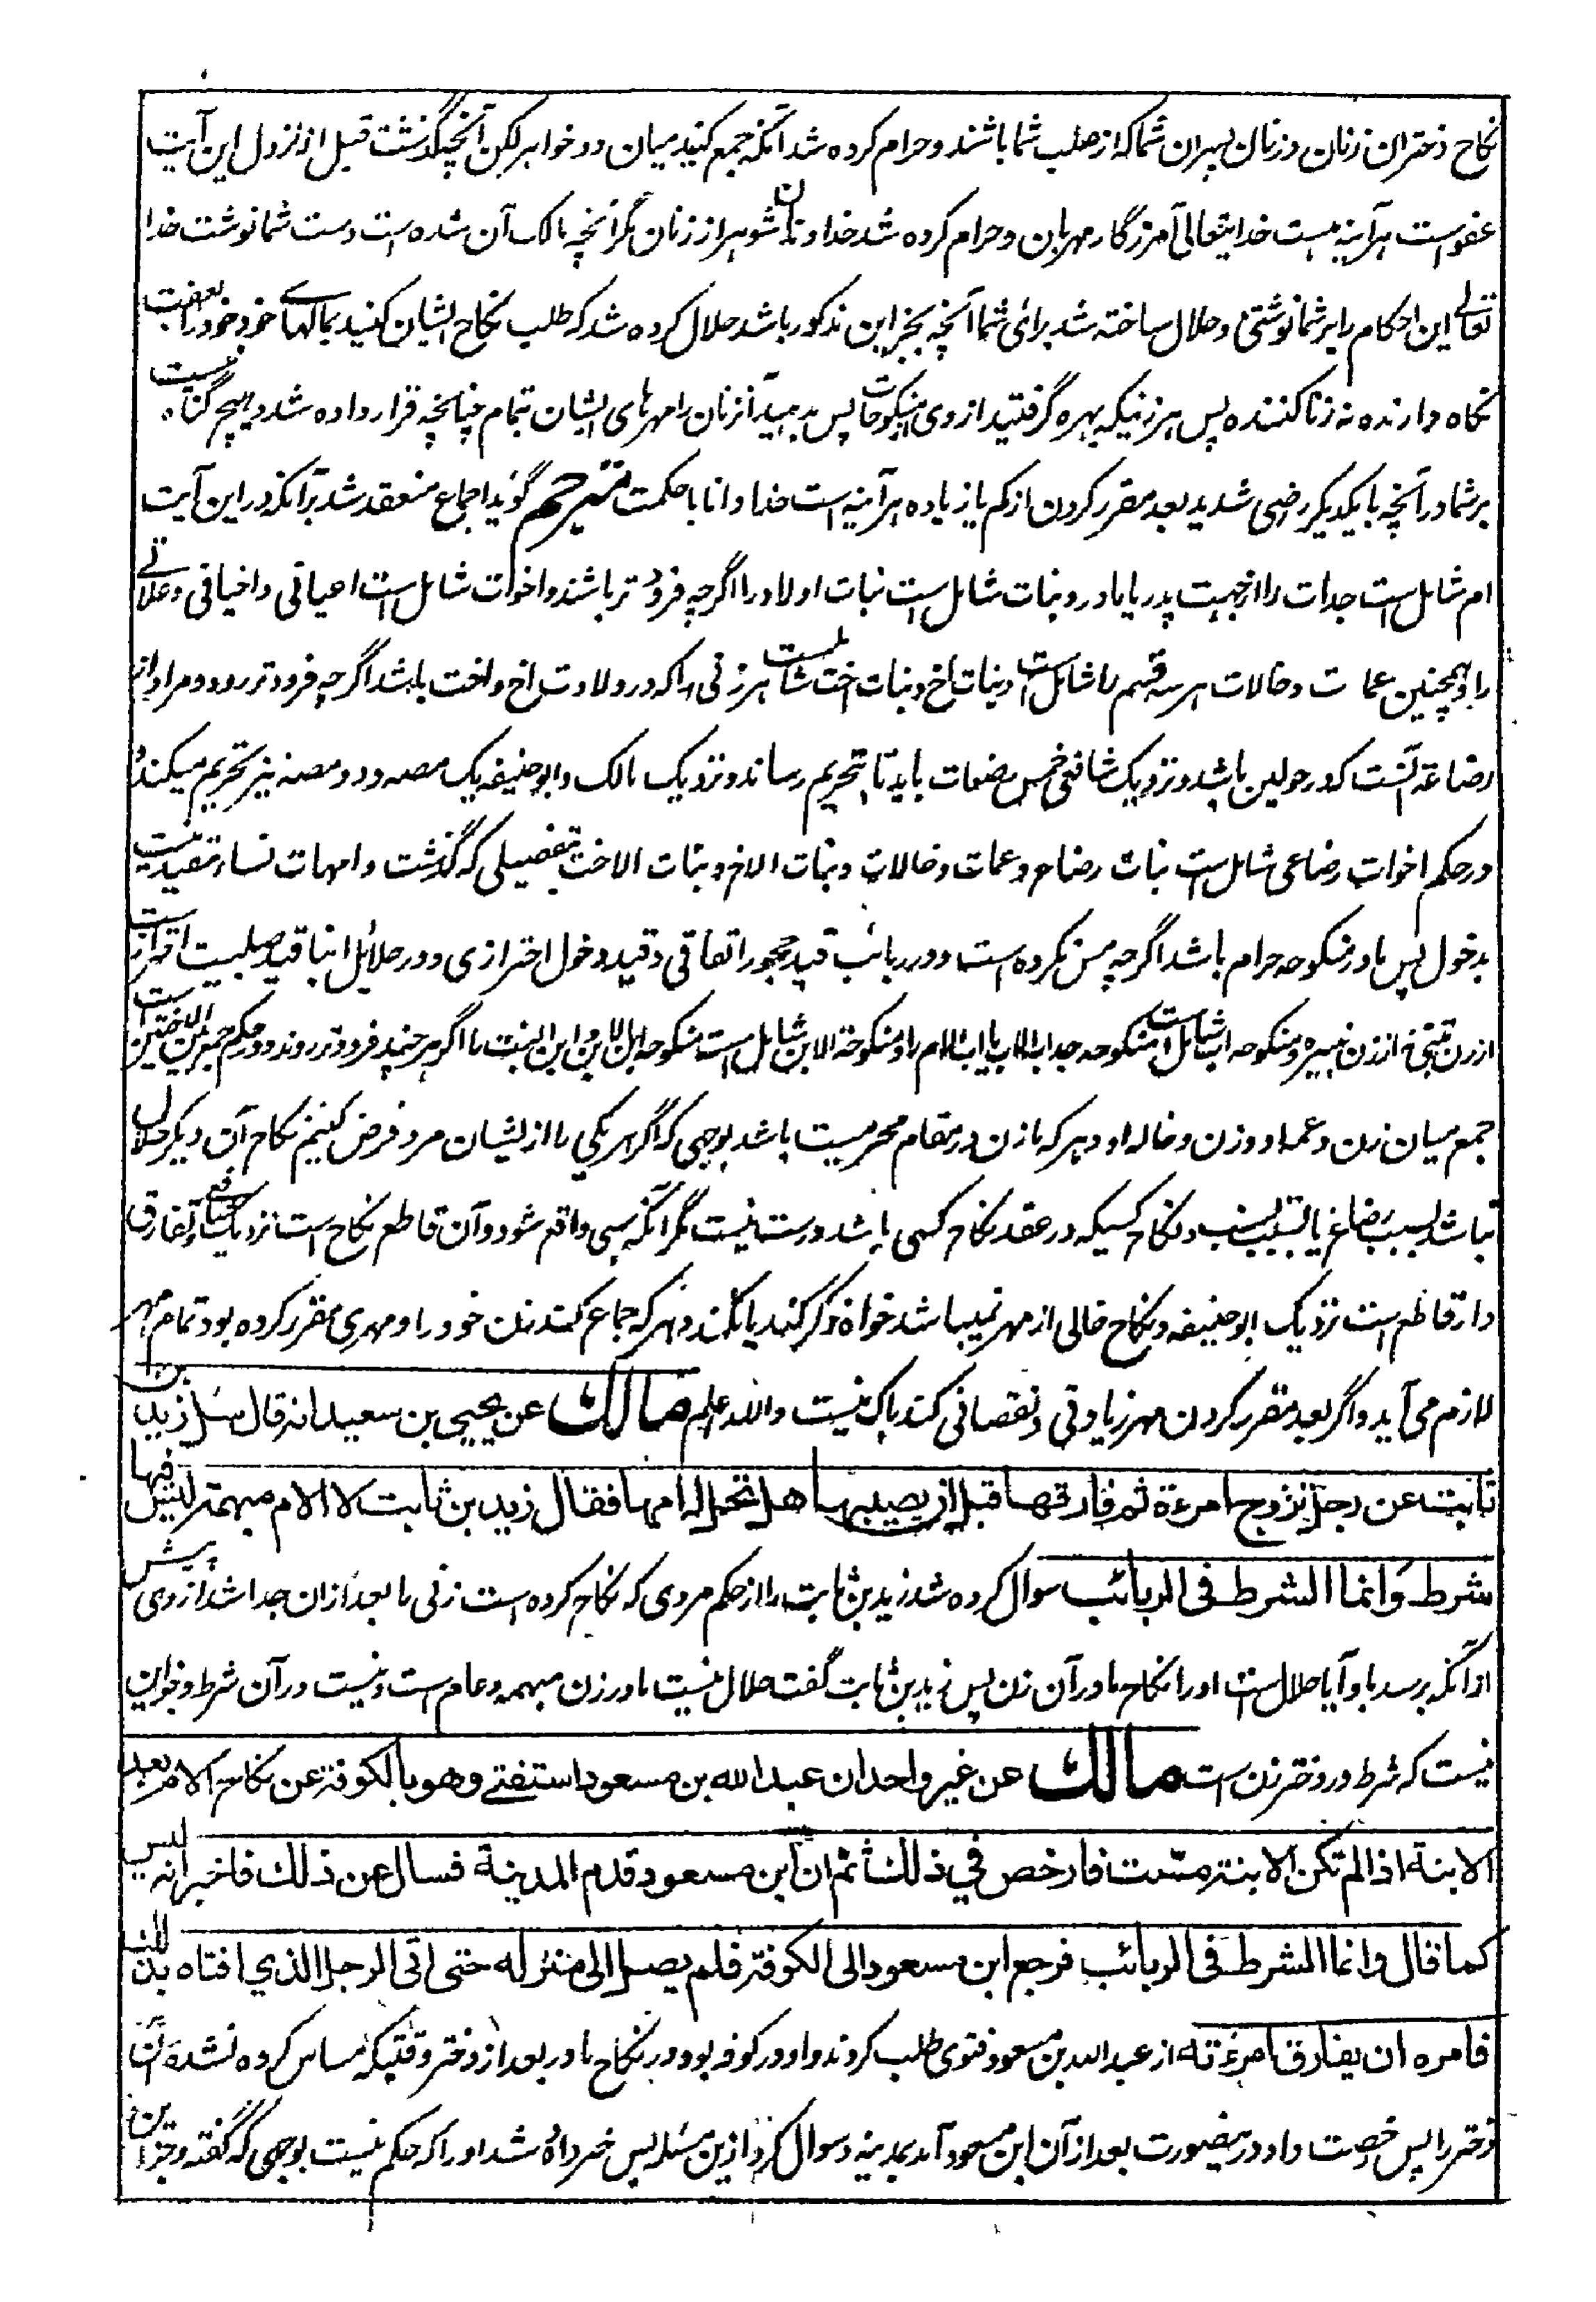 نکاح دختران زنان و زنان پسران شما که از صلب شما باشند و حرام کرده شد آنکه جمع کنید میان دو خواهر لکن آنچه گذشت قبل از نزول این آیت
عفو است هر آینه هست خدایتعالی آمرزگار مهربان و حرام کرده شد خداوندان شوهر از زنان مگر آنچه مالک آن شده است دست شما نوشت خدا
تعالے این احکام را بر شما نوشتنی و حلال ساخته شد برای شما آنچه بجز این مذکور باشد حلال کرده شد که طلب نکاح ایشان کنید بمالهاے خود خود را بعفت
نگاه دارنده نه زنا کننده پس هر زنیکه بهره گرفتید از وی از منکوحات پس بدهید آنزنان را مهرهای ایشان تمام چنانچه قرار داده شد و هیچ گناه نیست
بر شما در آنچه با یکدیگر راضی شدید بعد مقرر کردن از کم یا زیاده هر آینه است خدا دانا با حکمت مترجم گوید اجماع منعقد شد بر آنکه در این آیت
ام شامل است جدات را از جهت پدر یا مادر و بنات شامل است بنات اولاد را اگرچه فروتر باشند و اخوات شامل است اعیانی و اخیافی و علاتے
را و همچنین عمات و خالات هر سه قسم را شامل است و بنات اخ و بنات اخت شامل است هر زنی را که در ولادت اخ و اخت باشد اگرچه فرودتر رود و مراد از
رضاعة آنست که در حولین باشد و نزدیک شافعی خمس رضعات باید تا بتحریم رساند و نزدیک مالک و ابوحنیفه یک مصه و دو مصه نیز تحریم میکند و
در حکم اخوات رضاعی شامل است بنات رضاع و عمات و خالات و بنات الاخ و بنات الاخت بتفصیلی که گذشت و امهات نساء مقید نیست
بدخول پس مادر منکوحه حرام باشد اگرچه مس نکرده است و در ربائب قید حجور اتفاقی و قید دخول احترازی و در حلائل ابنا قید صلبیت احتراز است
از زن متبنی نه از زن نبیره و منکوحه اب شامل است منکوحه جد اب الاب یا اب الام را و منکوحة الابن شامل است منکوحه ابن الابن و ابن البنت را اگر هر چند فرودتر روند و در حکم جمع بین الاختین است
جمع میان زن و عمه او و زن و خاله او و هر که با زن در مقام محرمیت باشد بوجهی که اگر هر یکی را از ایشان مرد فرض کنیم نکاح آن دیگر حلال
نباشد بسبب رضاع یا بسبب نسب و نکاح کسیکه در عقد نکاح کسی باشد درست نیست مگر آنکه سبی واقع شود و آن قاطع نکاح است نزدیک شافعی و تفارق
دار قاطع است نزدیک ابوحنیفه و نکاح خالی از مهر نمیباشد خواه ذکر کنند یا نکنند و هر که جماع کند زن خود را و مهری مقرر کرده بود تمام مهر
لازم می آید و اگر بعد مقرر کردن مهر زیادتی و نقصانی کند باک نیست والله اعلم مالك عن یحیی بن سعید انه قال سئل زید بن
ثابت عن رجل تزوج امرءة ثم فارقها قبل ان یصیبها هل تحل له امها فقال زید بن ثابت لا الام مبهمة لیس فیها
شرط وانما الشرط فی الربائب سوال کرده شد زید بن ثابت را از حکم مردی که نکاح کرده است زنی را بعد از ان جدا شد از وی پیش
از آنکه برسد باو آیا حلال است او را نکاح مادر آن زن پس زید بن ثابت گفت حلال نیست مادر زن مبهمه و عام است و نیست در آن شرط و جز این
نیست که شرط در دختر زن است مالك عن غیر واحد ان عبد الله بن مسعود استفتے وهو بالکوفة عن نکاح الام بعد
الابنة اذا لم تکن الابنة مست فارخص في ذلك ثم ان ابن مسعود قدم المدینة فسال عن ذلك فاخبر انه لیس
کما قال وانما الشرط فی الربائب فرجع ابن مسعود الی الکوفة فلم یصل الی منزله حتی اتی الرجل الذي افتاه بذلك
فامره ان یفارق امرءته از عبد الله بن مسعود فتوی طلب کردند و او در کوفه بود در نکاح مادر بعد از دختر وقتیکه مساس کرده نشده آن
دختر را پس رخصت داد در ینصورت بعد از آن ابن مسعود آمد بمدینه و سوال کرد از ین مسئله پس خبر داده شد او را که حکم نیست بوجهی که گفته و جز این